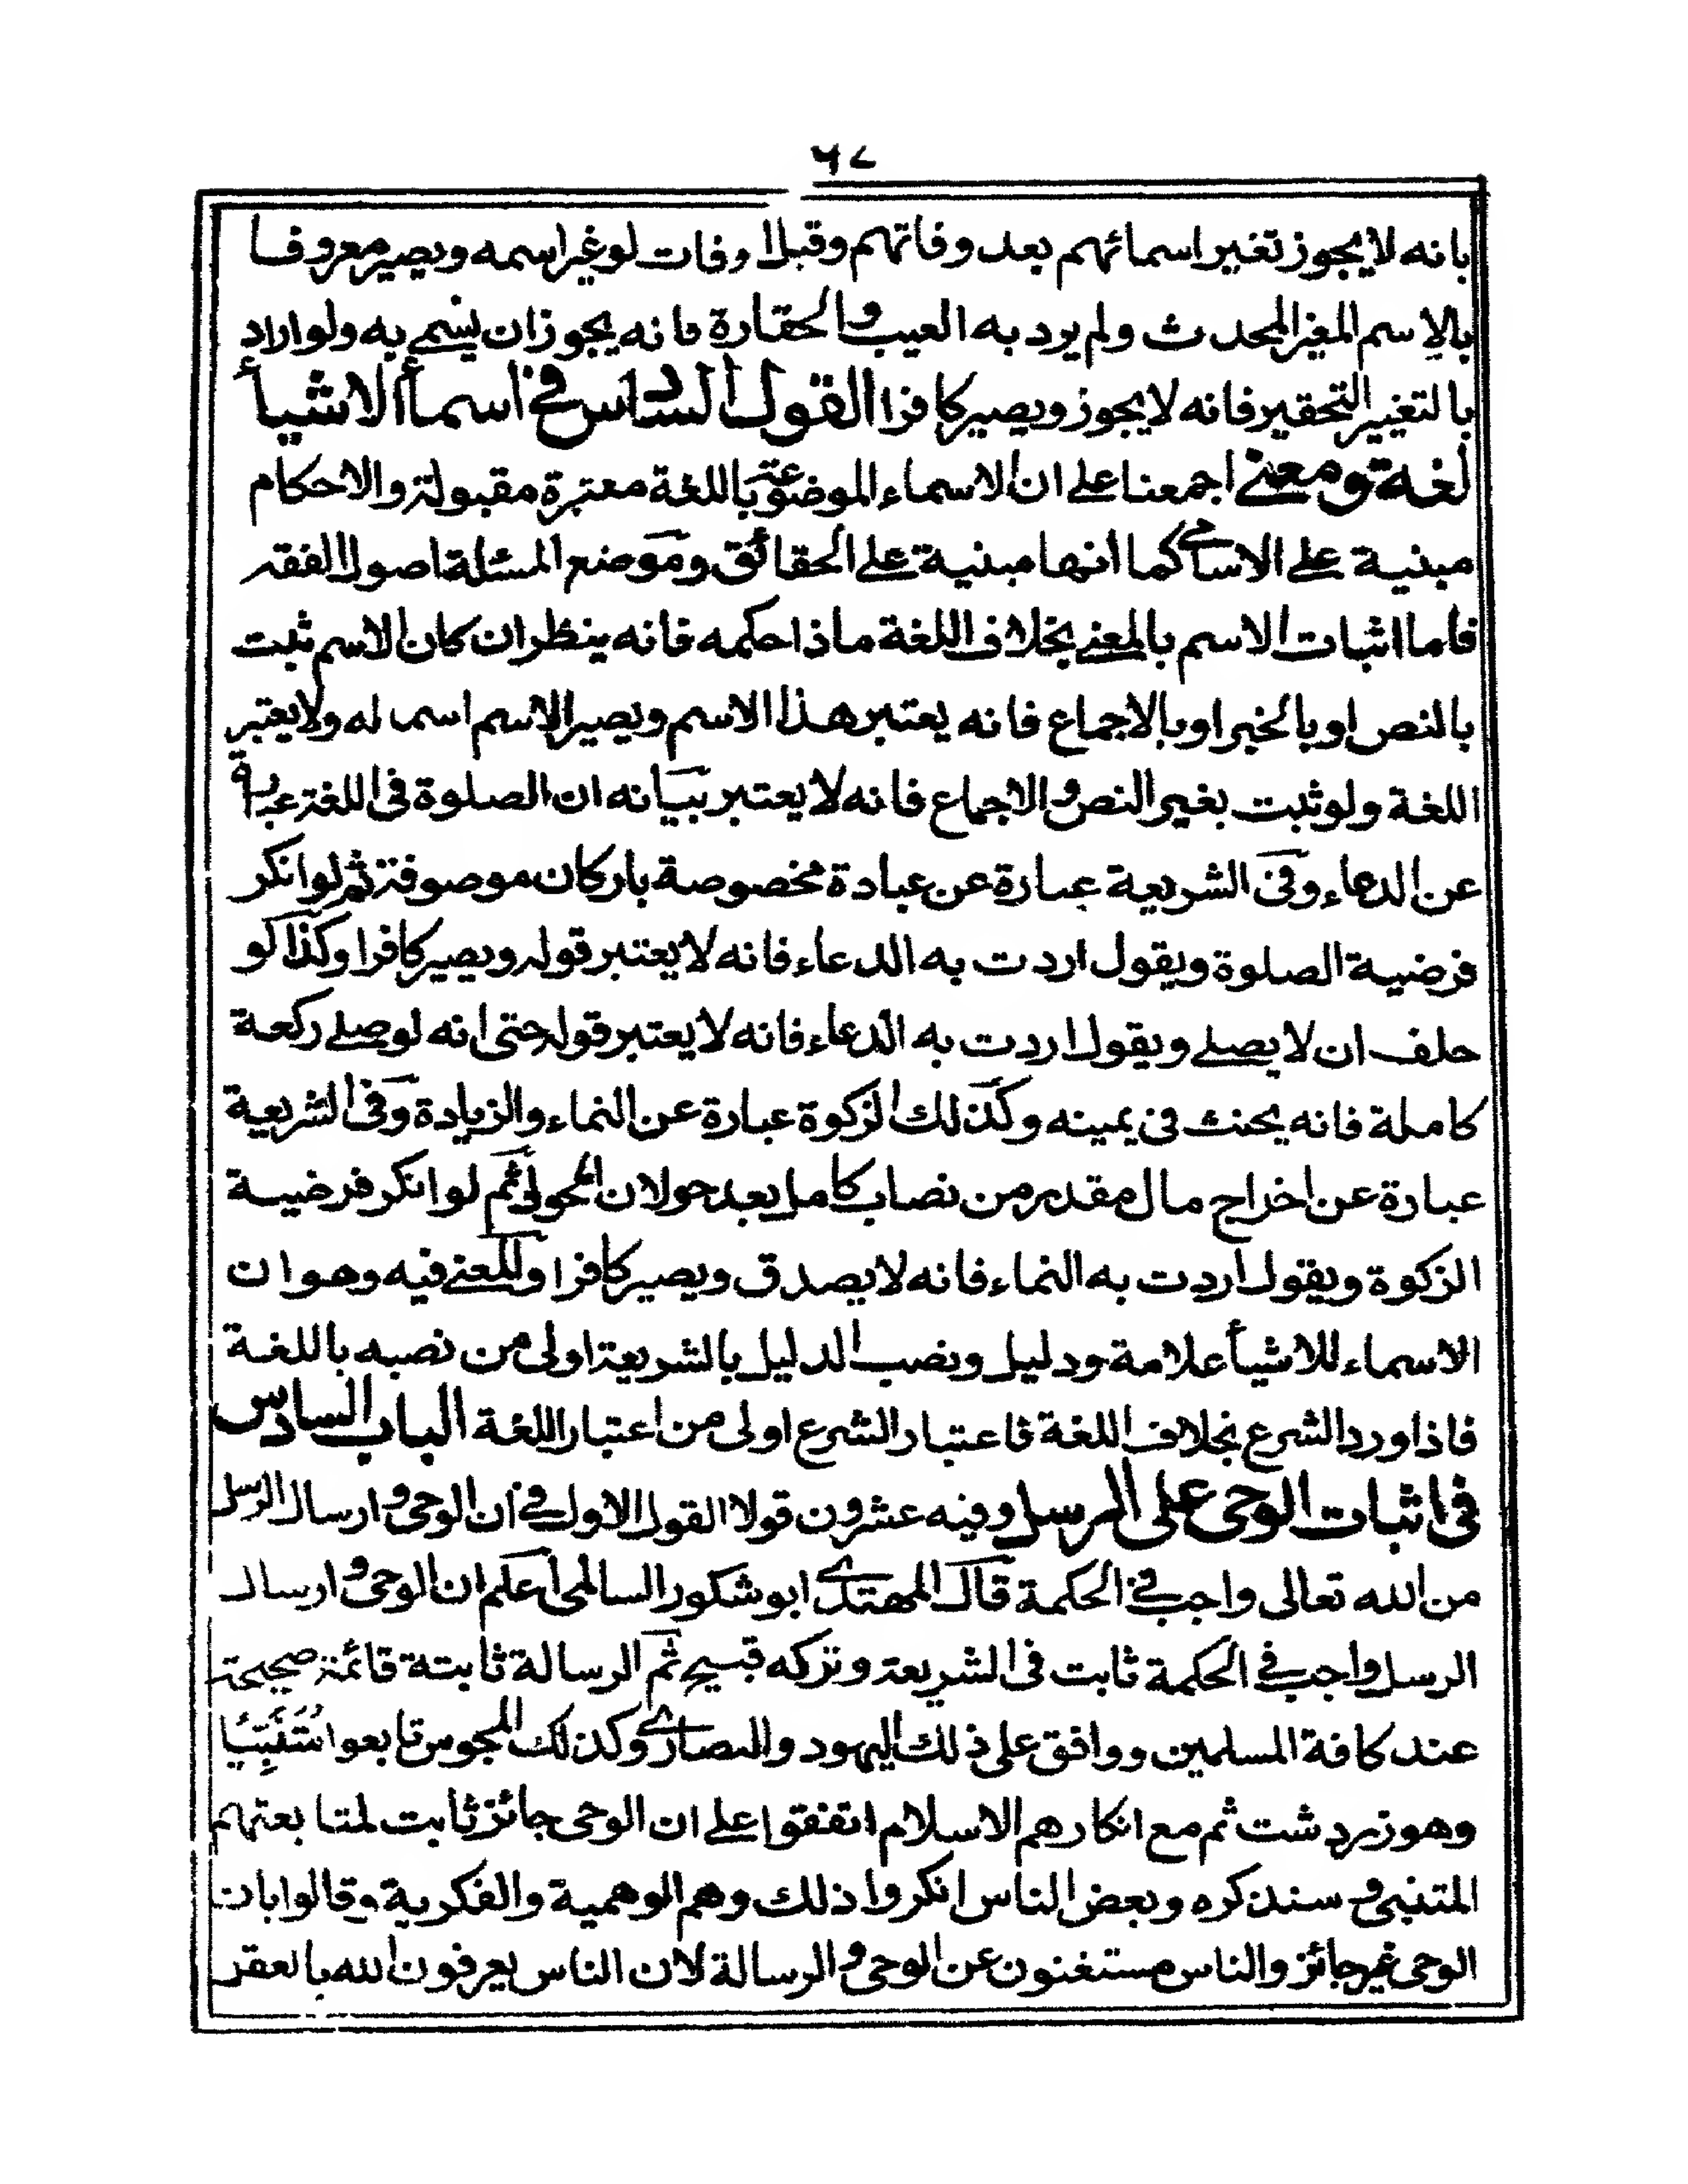 ٦٧
بانه لا يجوز تغير اسمائهم بعد وفاتهم وقبل اوفات لو غير اسمه ويصير معروفا
بالاسم المغير المحدث ولم يرد به العيب والحقارة فانه يجوز ان يسمى به ولو اراد
بالتغيير التحقير فانه لا يجوز ويصير كافرا القول السادس في اسماء الاشياء
لغة ومعنى اجمعنا على ان الاسماء الموضوعة باللغة معتبرة مقبولة والاحكام
مبنية على الاسامى كما انها مبنية على الحقائق وموضع المسئلة اصول الفقه
فاما اثبات الاسم بالمعنى بخلاف اللغة ماذا حكمه فانه ينظر ان كان الاسم ثبت
بالنص او بالخبر او بالاجماع فانه يعتبر هذا الاسم ويصير الاسم اسما له ولا يعتبر
اللغة ولو ثبت بغير النص والاجماع فانه لا يعتبر بيانه ان الصلوة فى اللغة عبارة
عن الدعاء وفى الشريعة عبارة عن عبادة مخصوصة باركان موصوفة ثم لو انكر
فرضية الصلوة ويقول اردت به الدعاء فانه لا يعتبر قوله ويصير كافرا وكذا لو
حلف ان لا يصلى ويقول اردت به الدعاء فانه لا يعتبر قوله حتى انه لو صلى ركعة
كاملة فانه يحنث فى يمينه وكذلك الزكوة عبارة عن النماء والزيادة وفى الشريعة
عبارة عن اخراج مال مقدر من نصاب كامل بعد حولان الحول ثم لو انكر فرضية
الزكوة ويقول اردت به النماء فانه لا يصدق ويصير كافرا والمعنى فيه وهو ان
الاسماء للاشياء علامة ودليل ونصب الدليل بالشريعة اولى من نصبه باللغة
فاذا ورد الشرع بخلاف اللغة فاعتبار الشرع اولى من اعتبار اللغة الباب السادس
فى اثبات الوحى على الرسل وفيه عشرون قولا القول الاول فى ان الوحى وارسال الرسل
من الله تعالى واجب فى الحكمة قال المهتدى ابو شكور السالمى اعلم ان الوحى وارسال
الرسل واجب فى الحكمة ثابت فى الشريعة وتركه قبيح ثم الرسالة ثابتة قائمة صحيحة
عند كافة المسلمين ووافق على ذلك اليهود والنصارى وكذلك المجوس تابعوا مُتَنَبِّيًا
وهو زردشت ثم مع انكارهم الاسلام اتفقوا على ان الوحى جائز ثابت لمتابعتهم
المتنبى وسنذكره وبعض الناس انكروا ذلك وهم الوهمية والفكرية وقالوا بان
الوحى غير جائز والناس مستغنون عن الوحى والرسالة لان الناس يعرفون الله بالعقل